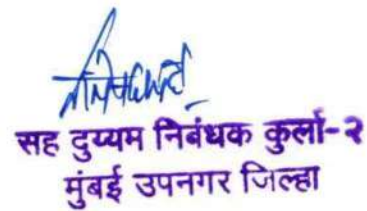 सह दुय्यम निबंधक कुर्ला-२
मुंबई उपनगर जिल्हा